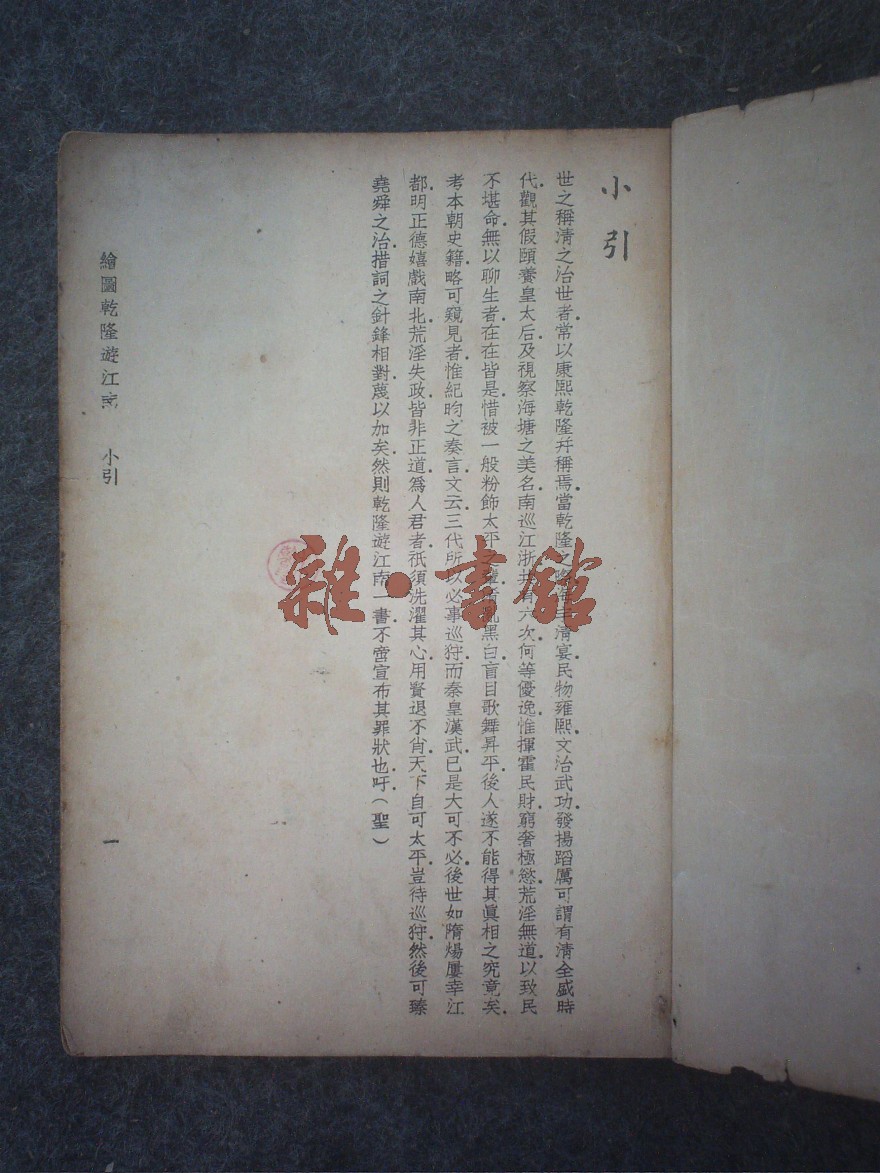 小引
世之稱清之治世者常以康熙乾隆幷稱焉當乾隆之際清宴民物雍熙文治武功發揚蹈厲可謂有清全盛時
代觀其假頤養皇太后及視察海塘之美名南巡江浙共有六次何等優逸惟揮霍民財窮奢極慾荒淫無道以致民
不堪命無以聊生者在在皆是惜被一般粉飾太平之黑白盲目歌舞昇平後人遂不能得其眞相之究竟矣
考本朝史籍略可窺見者惟紀昀之奏言文云三代所以必事巡狩而秦皇漢武已是大可不必後世如隋煬屢幸江
都明正德嬉戲南北荒淫失政皆非正道爲人君者祇須洗濯其心用賢退不肖天下自可太平豈待巡狩然後可臻
堯舜之治措詞之針鋒相對蔑以加矣然則乾隆遊江南一書不啻宣布其罪狀也吁(聖)
繪圖乾隆遊江 小引 一
雜·書館